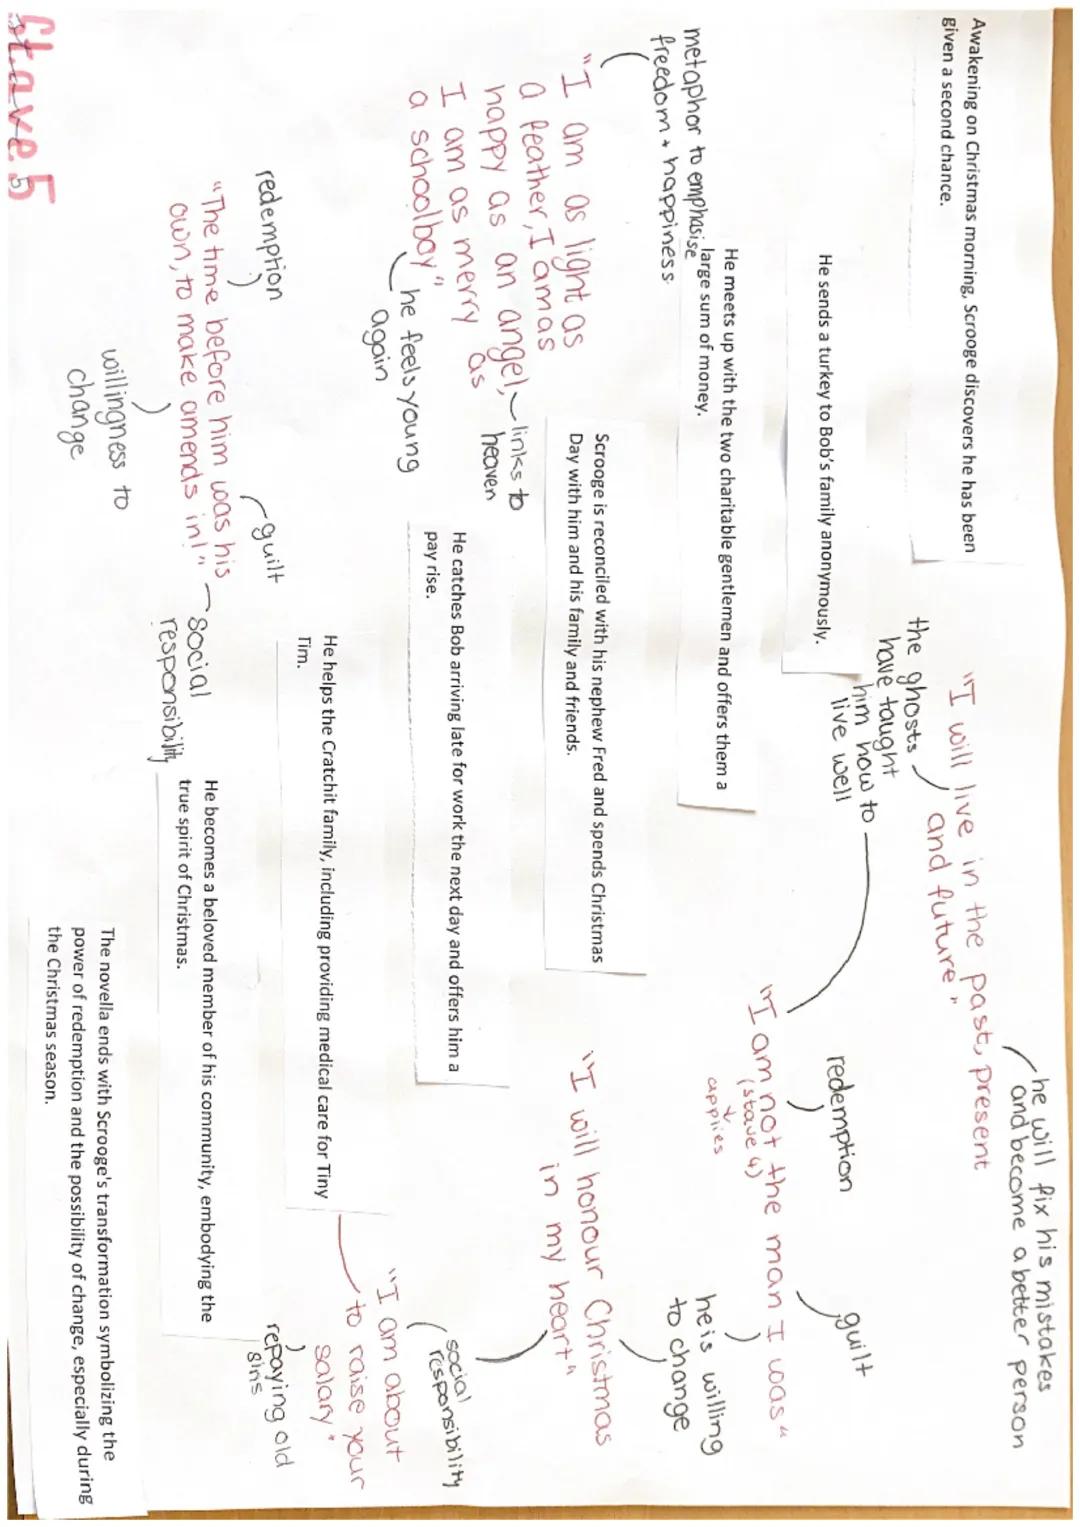 Stave 5
Awakening on Christmas morning, Scrooge discovers he has been
given a second chance.
"I will live in the past, present
and future"
he will fix his mistakes
and become a better person
the ghosts
have taught
him how to
live well
He sends a turkey to Bob's family anonymously.
redemption
guilt
"I am not the man I was"
(stave 4)
applies
he is willing
to change
He meets up with the two charitable gentlemen and offers them a
large sum of money.
metaphor to emphasise
freedom + happiness
"I am as light as
a feather, I am as
happy as an angel,
I am as merry as
a schoolboy"
links to
heaven
he feels young
again
Scrooge is reconciled with his nephew Fred and spends Christmas
Day with him and his family and friends.
"I will honour Christmas
in my heart"
social
responsibility
He catches Bob arriving late for work the next day and offers him a
pay rise.
"I am about
to raise your
salary"
repaying old
sins
He helps the Cratchit family, including providing medical care for Tiny
Tim.
redemption
guilt
"The time before him was his
own, to make amends in!"
social
responsibility
willingness to
change
He becomes a beloved member of his community, embodying the
true spirit of Christmas.
The novella ends with Scrooge's transformation symbolizing the
power of redemption and the possibility of change, especially during
the Christmas season.